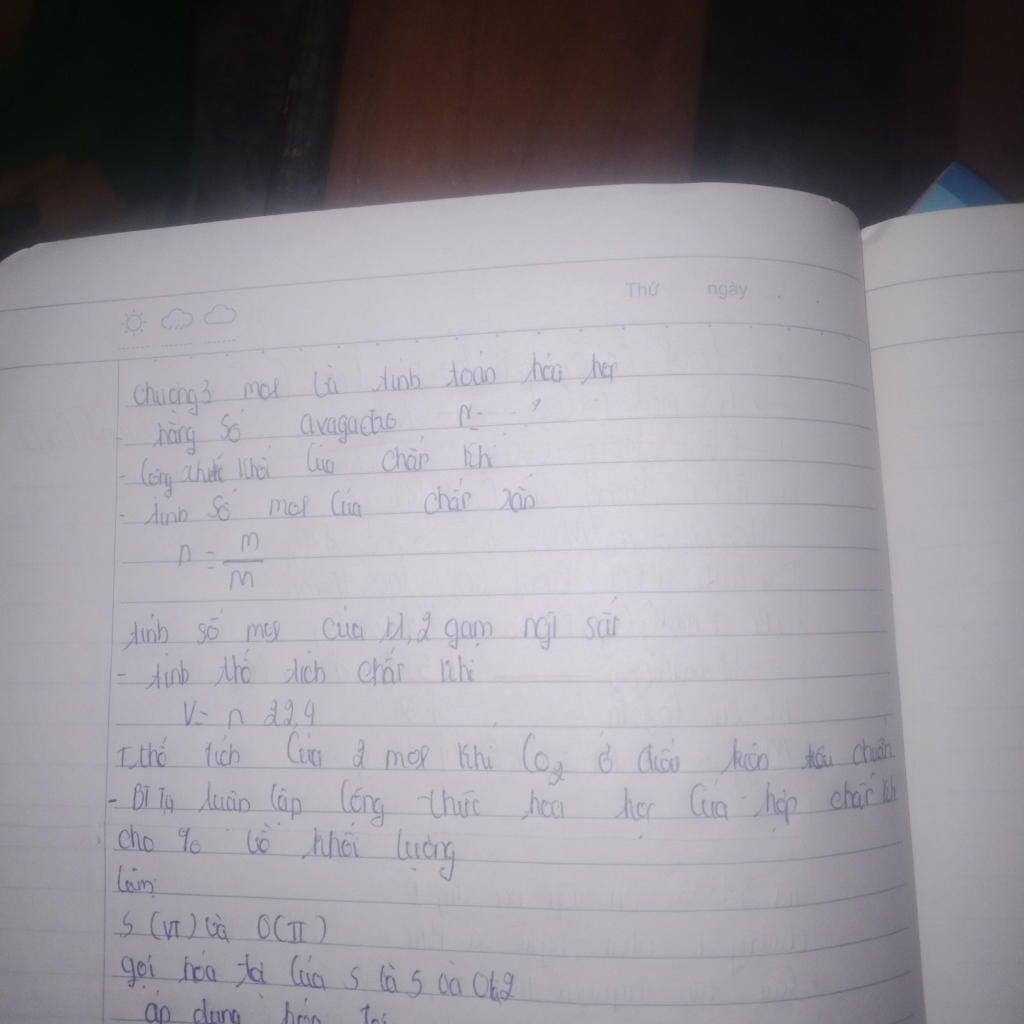 Thứ ngày
Chương 3 mol và tính toán hóa học
hằng số avagađro N =
- Công thức khối của chất khí
- tính số mol của chất rắn
n = m/M
tính số mol của 11,2 gam ngt sắt
- tính thể tích chất khí
V = n 22,4
T, thể tích của 2 mol khí CO2 ở điều kiện tiêu chuẩn
- BT Tự luận lập công thức hoá học của hợp chất khi
cho % về khối lượng
làm
S (VI) và O (II)
gọi hóa trị của S là
áp dụng hóa trị